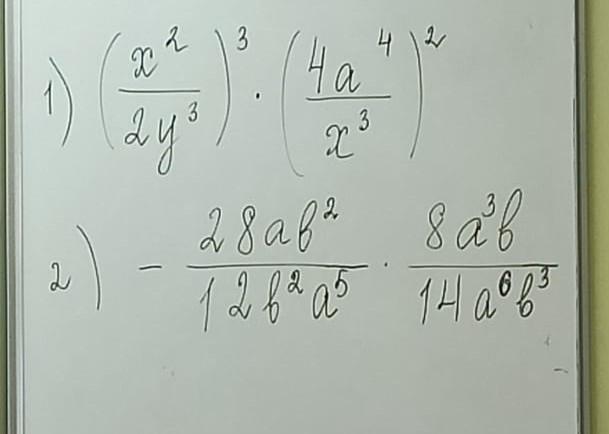 1) (x²/2y³)³ · (4a⁴/x³)²
2) − 28ab²/12b²a⁵ · 8a³b/14a⁶b³